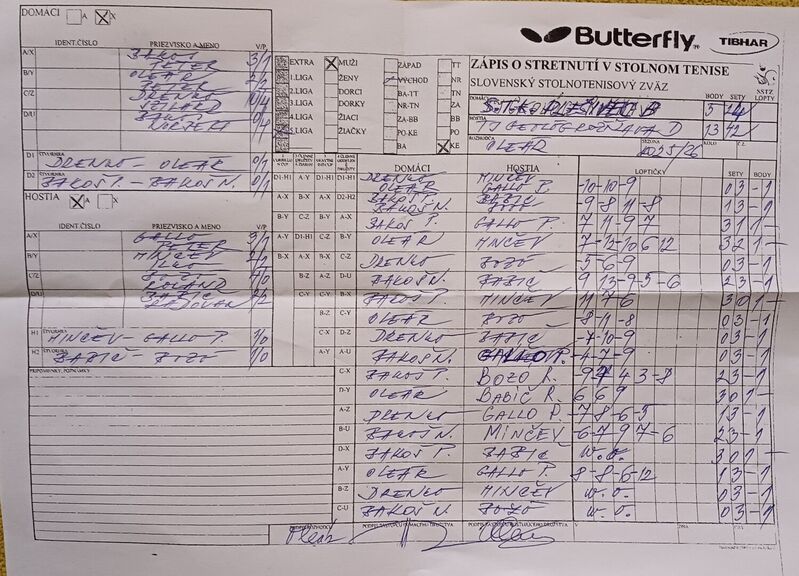 DOMÁCI A X
Butterfly
TIBHAR
IDENT.ČÍSLO PRIEZVISKO A MENO V/P
EXTRA MUŽI ZÁPAD TT
ZÁPIS O STRETNUTÍ V STOLNOM TENISE
1.LIGA ŽENY VÝCHOD NR
SLOVENSKÝ STOLNOTENISOVÝ ZVÄZ
SSTZ
2.LIGA DORCI BA-TT TN
3.LIGA DORKY NR-TN ZA
4.LIGA ŽIACI ZA-BB BB
5.LIGA ŽIAČKY PO-KE PO
BA KE
BODY SETY LOPTY
HOSTIA
13 42
ROZHODCA OLEAR SEZÓNA 2025/26 KOLO
A/X BAKOŠ PETER 3/1
B/Y OLEAR PETER 2/2
C/Z DRENKO 0/4
D/U BAKOŠ NORBERT
D1 ŠTVORHRA DRENKO - OLEAR 0/1
D2 BAKOŠ P. - BAKOŠ N. 0/1
HOSTIA X A X
IDENT.ČÍSLO PRIEZVISKO A MENO V/P
A/X GALLO PETER 3/1
B/Y MINČEV
C/Z BOZÓ ROLAND
D/U BABIČ RADOVAN
H1 ŠTVORHRA MINČEV - GALLO P. 1/0
H2 ŠTVORHRA BABIČ - BOZÓ 1/0
PRIPOMIENKY, POZNÁMKY
DOMÁCI HOSTIA LOPTIČKY SETY BODY
D1-H1 DRENKO OLEAR MINČEV GALLO P. -10-10-9 03 -1
D2-H2 BAKOŠ P. BAKOŠ N. BABIČ -9-8 11-8 13 -1
A-X BAKOŠ P. GALLO P. 7 11-9 7 31 1-
B-Y OLEAR MINČEV 7-12-10 6 12 32 1-
C-Z DRENKO BOZÓ -5-6-9 03 -1
D-U BAKOŠ N. BABIČ 9 13-9-5-6 23 -1
B-X BAKOŠ P. MINČEV 11 7 6 30 1-
C-Y OLEAR BOZÓ -8-11-8 03 -1
D-Z DRENKO BABIČ -7-10-9 03 -1
A-U BAKOŠ N. GALLO P. -4-7-9 03 -1
C-X BAKOŠ P. BOZO R. 23 -1
D-Y OLEAR BABIČ R. 6 6 9 30 1-
A-Z DRENKO GALLO P. -7-8 6-5 13 -1
B-U BAKOŠ N. MINČEV -6-7 9 7-6 23 -1
D-X BAKOŠ P. BABIČ w.o. 30 1-
A-Y OLEAR GALLO P. 8-8-6-12 13 -1
B-Z DRENKO MINČEV w.o. 03 -1
C-U BAKOŠ N. BOZÓ w.o. 03 -1
PODPIS ROZHODCU PODPIS VEDÚCEHO DOMÁCEHO DRUŽSTVA
Olear